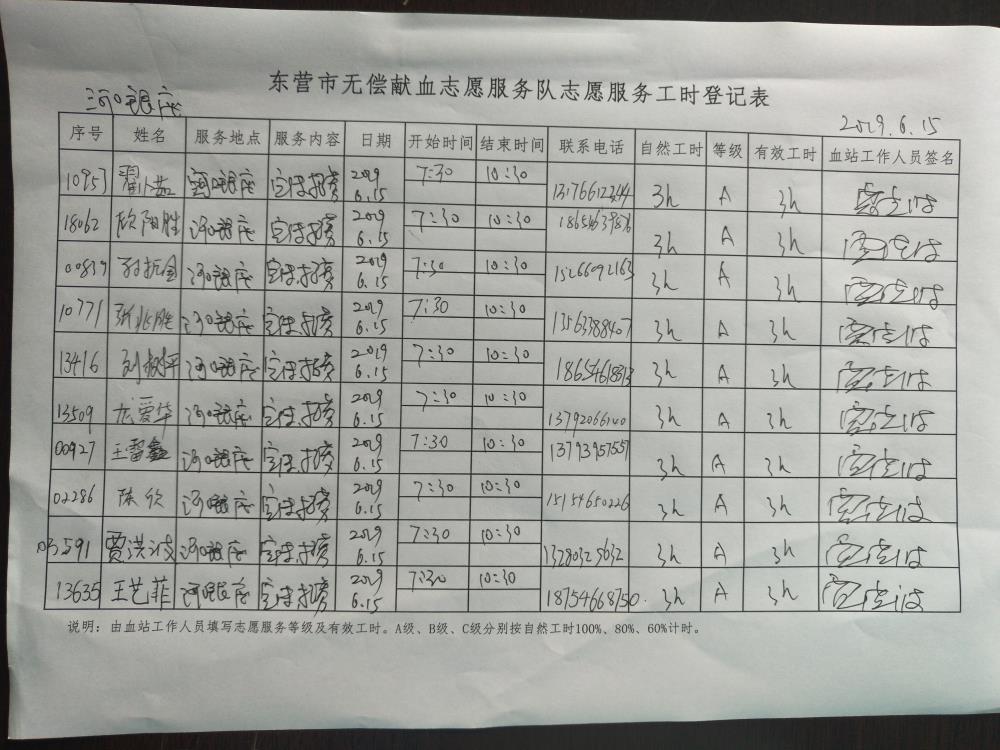 东营市无偿献血志愿服务队志愿服务工时登记表
河口银座
2019.6.15
序号 姓名 服务地点 服务内容 日期 开始时间 结束时间 联系电话 自然工时 等级 有效工时 血站工作人员签名
10953 河口银座 宣传招募 2019 6.15 7:30 10:30 13176612344 3h A 3h
18062 欧阳胜 河口银座 宣传招募 2019 6.15 7:30 10:30 3h A 3h
00839 河口银座 宣传招募 2019 6.15 7:30 10:30 15266092163 3h A 3h
10771 张兆胜 河口银座 宣传招募 2019 6.15 7:30 10:30 13563388407 3h A 3h
13416 河口银座 宣传招募 2019 6.15 7:30 10:30 3h A 3h
13509 尤爱华 河口银座 宣传招募 2019 6.15 7:30 10:30 13792066140 3h A 3h
00927 王雷鑫 河口银座 宣传招募 2019 6.15 7:30 10:30 13793957557 3h A 3h
02286 陈欣 河口银座 宣传招募 2019 6.15 7:30 10:30 15154650226 3h A 3h
03591 贾洪波 河口银座 宣传招募 2019 6.15 7:30 10:30 3h A 3h
13635 王艺菲 河口银座 宣传招募 2019 6.15 7:30 10:30 18754668750 3h A 3h
说明：由血站工作人员填写志愿服务等级及有效工时。A级、B级、C级分别按自然工时100%、80%、60%计时。